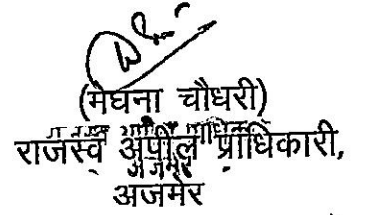 (मेघना चौधरी)
राजस्व अपील प्राधिकारी,
अजमेर